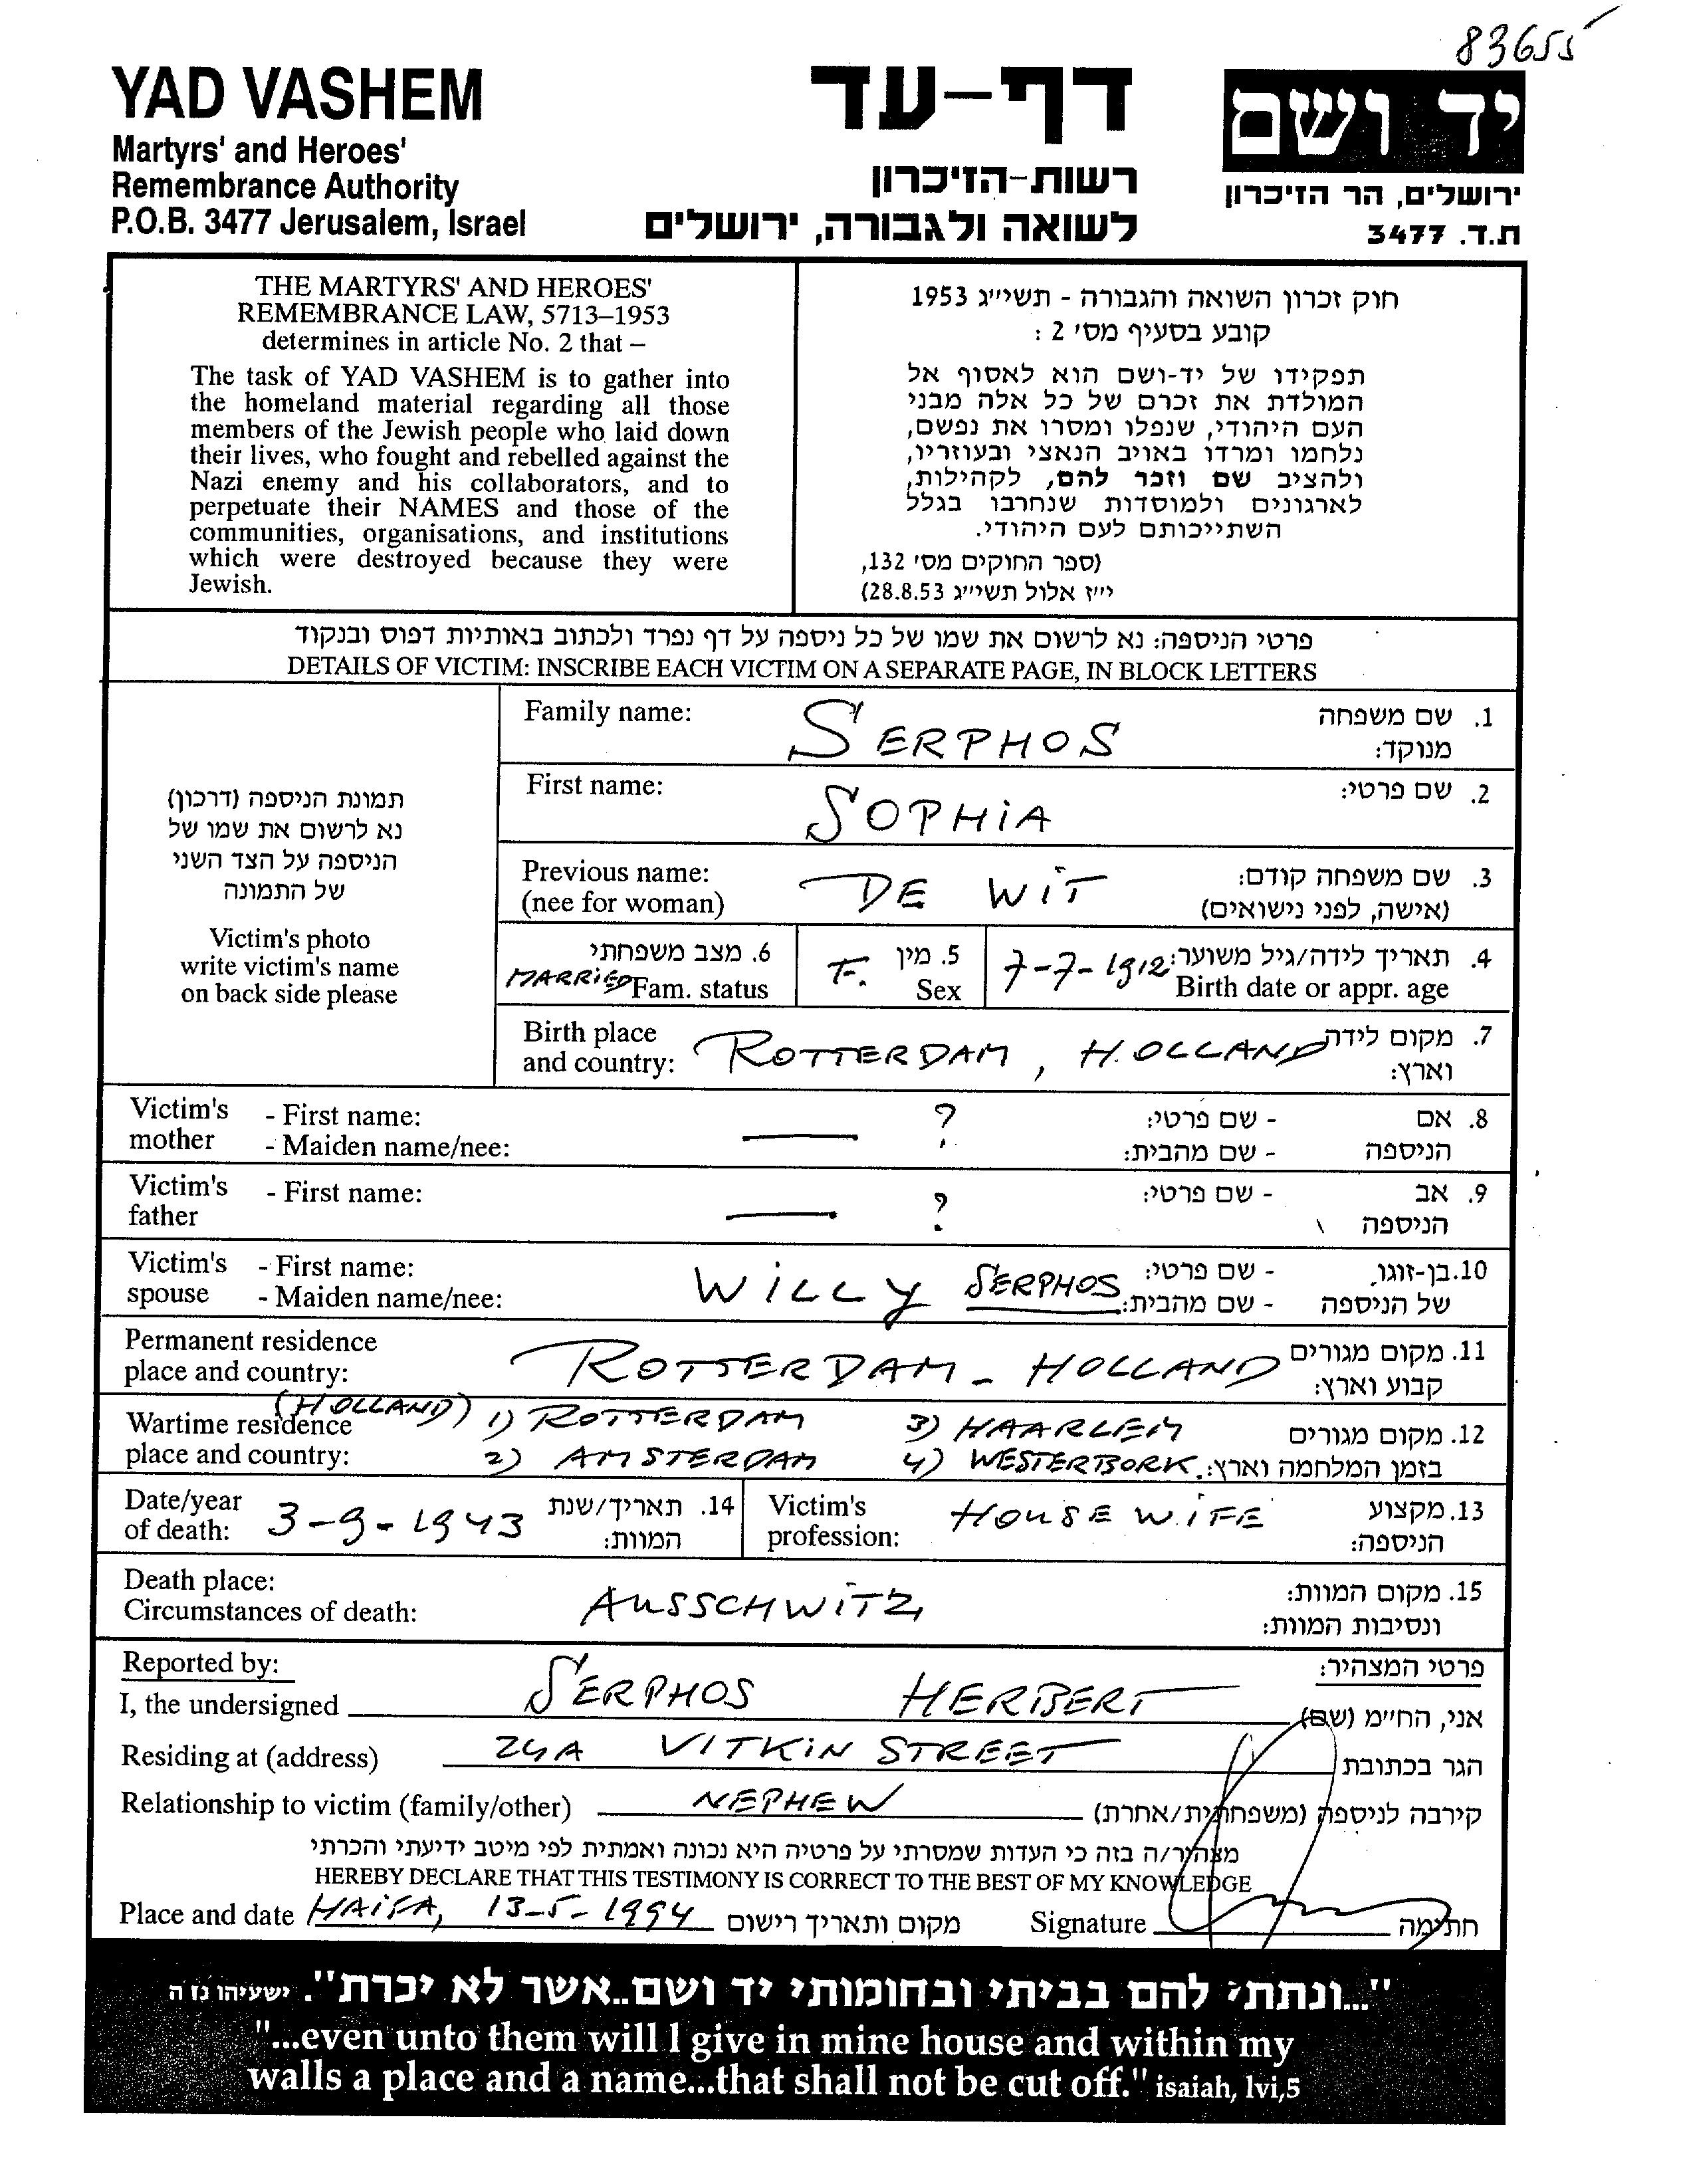 83655
YAD VASHEM
Martyrs' and Heroes'
Remembrance Authority
P.O.B. 3477 Jerusalem, Israel
דף-עד
רשות-הזיכרון
לשואה ולגבורה, ירושלים
יד ושם
ירושלים, הר הזיכרון
ת.ד. 3477
THE MARTYRS' AND HEROES'
REMEMBRANCE LAW, 5713–1953
determines in article No. 2 that –
The task of YAD VASHEM is to gather into
the homeland material regarding all those
members of the Jewish people who laid down
their lives, who fought and rebelled against the
Nazi enemy and his collaborators, and to
perpetuate their NAMES and those of the
communities, organisations, and institutions
which were destroyed because they were
Jewish.
חוק זכרון השואה והגבורה - תשי"ג 1953
קובע בסעיף מס' 2 :
תפקידו של יד-ושם הוא לאסוף אל
המולדת את זכרם של כל אלה מבני
העם היהודי, שנפלו ומסרו את נפשם,
נלחמו ומרדו באויב הנאצי ובעוזריו,
ולהציב שם וזכר להם, לקהילות,
לארגונים ולמוסדות שנחרבו בגלל
השתייכותם לעם היהודי.
(ספר החוקים מס' 132,
י"ז אלול תשי"ג 28.8.53)
פרטי הניספה: נא לרשום את שמו של כל ניספה על דף נפרד ולכתוב באותיות דפוס ובנקוד
DETAILS OF VICTIM: INSCRIBE EACH VICTIM ON A SEPARATE PAGE, IN BLOCK LETTERS
תמונת הניספה (דרכון)
נא לרשום את שמו של
הניספה על הצד השני
של התמונה
Victim's photo
write victim's name
on back side please
Family name: SERPHOS 1. שם משפחה
מנוקד:
First name: SOPHiA 2. שם פרטי:
Previous name: DE WiT 3. שם משפחה קודם:
(nee for woman) (אישה, לפני נישואים)
MARRiED 6. מצב משפחתי F. 5. מין 7-7-1912 4. תאריך לידה/גיל משוער:
Fam. status Sex Birth date or appr. age
Birth place ROTTERDAM, HOLLAND 7. מקום לידה
and country: וארץ:
Victim's - First name: ? - שם פרטי: 8. אם
mother - Maiden name/nee: — - שם מהבית: הניספה
Victim's - First name: — ? - שם פרטי: 9. אב
father הניספה
Victim's - First name: WiLLY SERPHOS - שם פרטי: 10. בן-זוגו
spouse - Maiden name/nee: - שם מהבית: של הניספה
Permanent residence ROTTERDAM - HOLLAND 11. מקום מגורים
place and country: קבוע וארץ:
(HOLLAND)
Wartime residence 1) ROTTERDAM 3) HAARLEM 12. מקום מגורים
place and country: 2) AMSTERDAM 4) WESTERBORK. בזמן המלחמה וארץ:
Date/year 3-9-1943 14. תאריך/שנת Victim's HOUSEWiFE 13. מקצוע
of death: המוות: profession: הניספה:
Death place: AUSSCHWiTZ 15. מקום המוות:
Circumstances of death: ונסיבות המוות:
Reported by: פרטי המצהיר:
I, the undersigned SERPHOS HERBERT אני, הח"מ (שם)
Residing at (address) 24A ViTKiN STREET הגר בכתובת
Relationship to victim (family/other) NEPHEW קירבה לניספה (משפחתית/אחרת)
מצהיר/ה בזה כי העדות שמסרתי על פרטיה היא נכונה ואמתית לפי מיטב ידיעתי והכרתי
HEREBY DECLARE THAT THIS TESTIMONY IS CORRECT TO THE BEST OF MY KNOWLEDGE
Place and date HAiFA, 13-5-1994 מקום ותאריך רישום Signature חתימה
"...ונתתי להם בביתי ובחומותי יד ושם..אשר לא יכרת". ישעיהו נו ה
"...even unto them will I give in mine house and within my
walls a place and a name...that shall not be cut off." isaiah, lvi,5